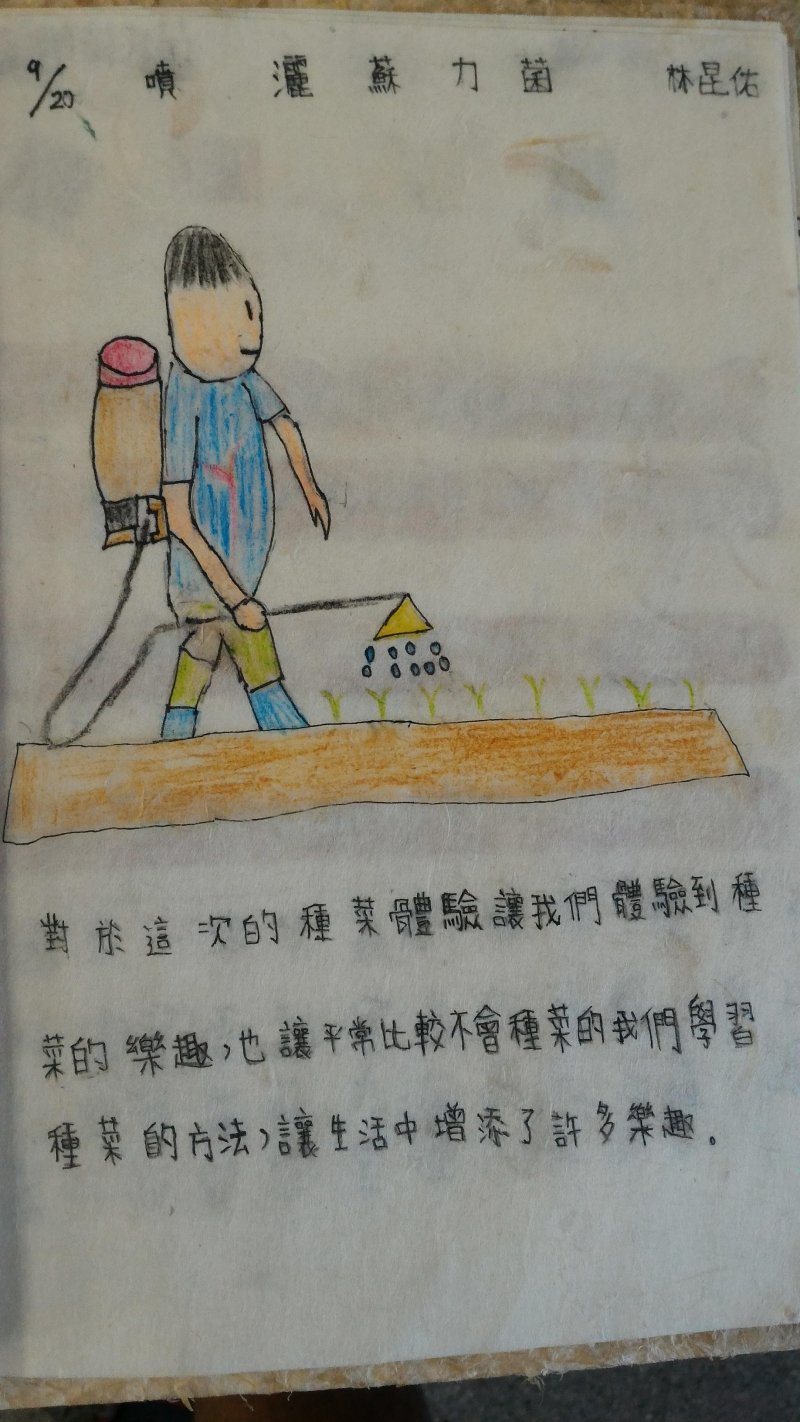 9/20 噴灑蘇力菌 林昆佑
對於這次的種菜體驗讓我們體驗到種
菜的樂趣,也讓平常比較不會種菜的我們學習
種菜的方法,讓生活中增添了許多樂趣。